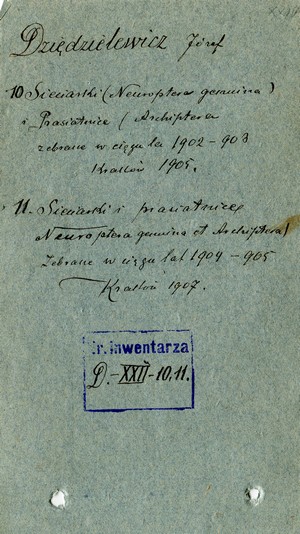 Dziędzielewicz Józef
10 Sieciarki (Neuroptera genuina)
i Prasiatnice (Archiptera
zebrane w ciągu lat 1902-903
Kraków 1905.
11. Sieciarki i prasiatnice
Neuroptera genuina et Archiptera)
Zebrane w ciągu lat 1904-905
Kraków 1907.
r. inwentarza
D.-XXII-10,11.